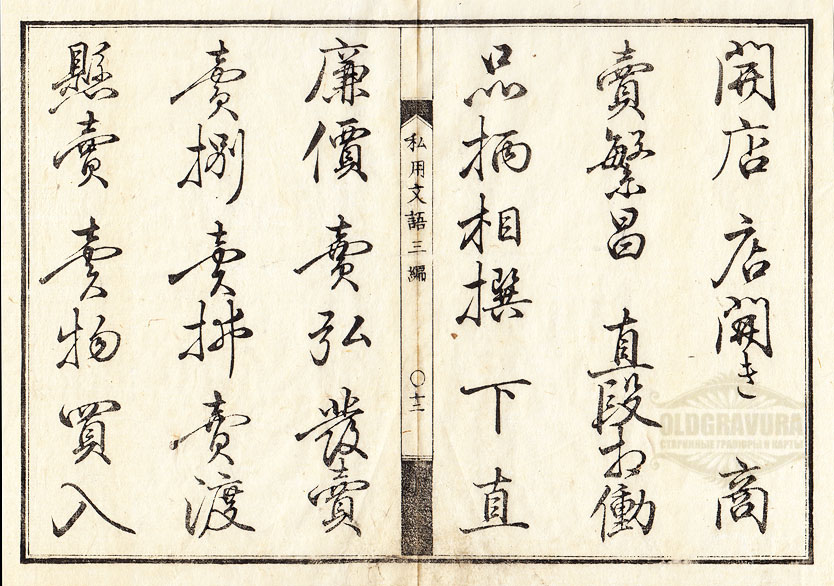 開店 店開き 商
賣繁昌 直段相働
品柄相撰 下直
私用文語三編
〇十二
廉價 賣弘 發賣
賣捌 賣拂 賣渡
懸賣 賣物 買入
OLDGRAVURA
СТАРИННЫЕ ГРАВЮРЫ И КАРТЫ